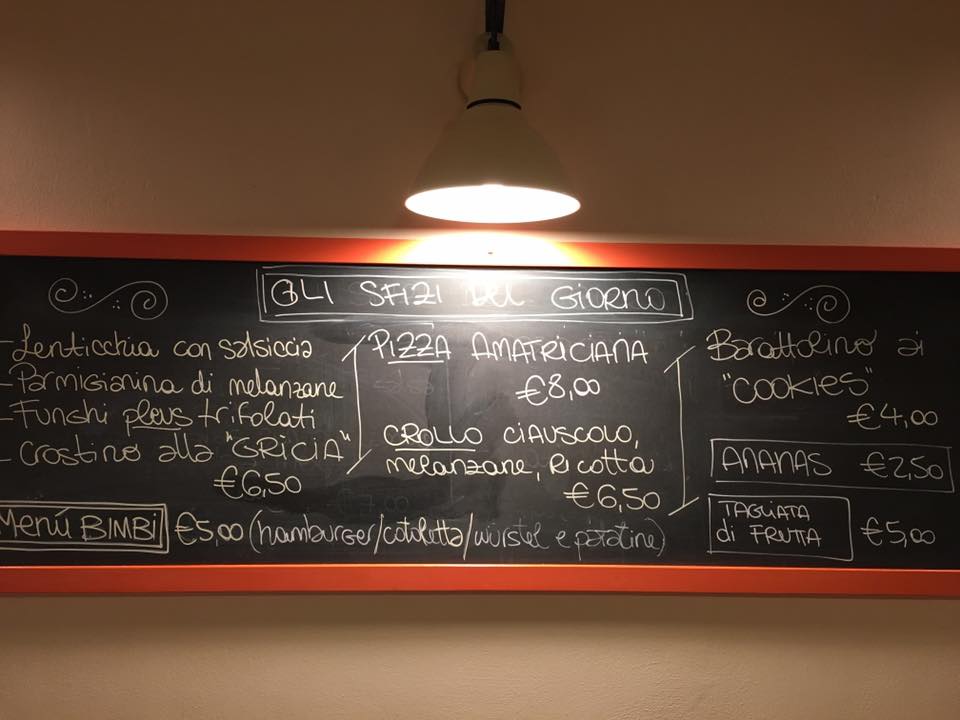 GLI SFIZI DEL GIORNO
- Lenticchia con salsiccia
- Parmigianina di melanzane
- Funghi pleus trifolati
- Crostino alla "GRICIA"
€6,50
PIZZA AMATRICIANA
€8,00
CROLLO CIAUSCOLO,
melanzane, RICOTTA
€6,50
Barattolino ai
"COOKIES"
€4,00
ANANAS €2,50
TAGLIATA
di FRUTTA €5,00
Menú BIMBI €5,00 (hamburger/cotoletta/würstel e patatine)